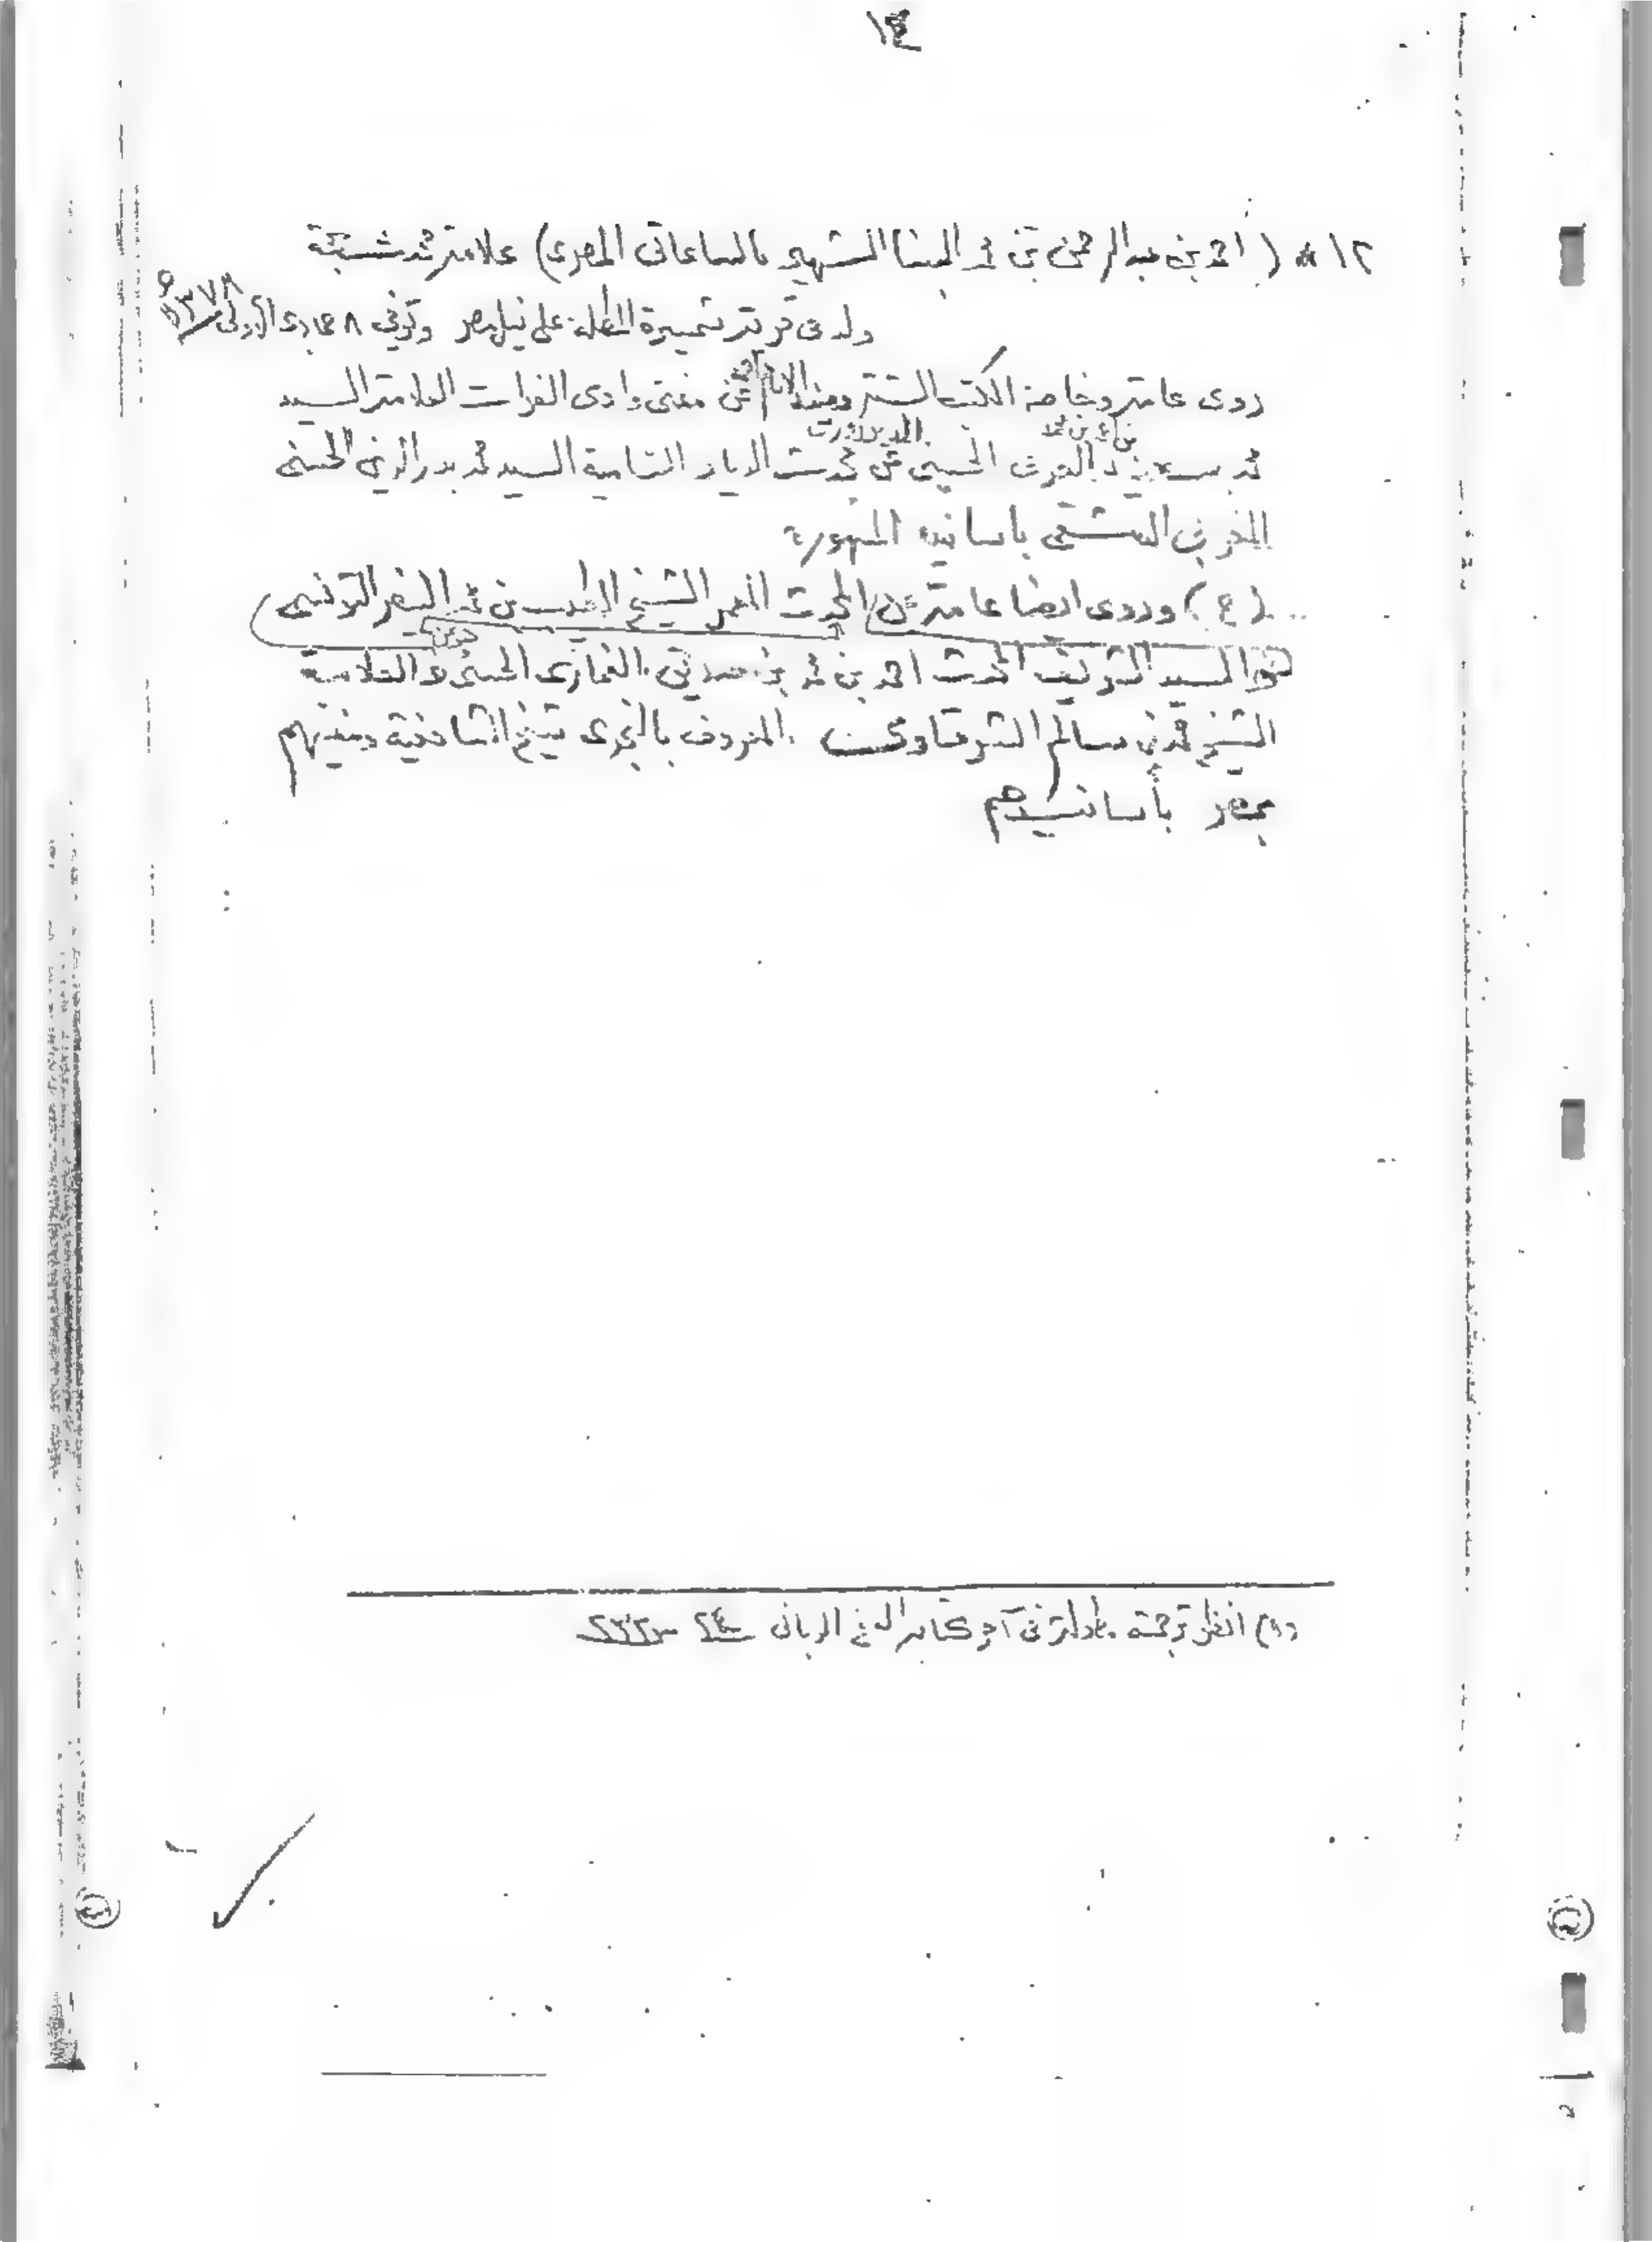 ١٤
١٢ * (أحمد بن عبد الرحمن بن محمد البنا الشهير بالساعاتي المصري) علامة محدث
ولد في قرية شمشيرة المطلة على نيل مصر وتوفي ٨ جمادى الأولى ١٣٧٨ هـ
روى عامة وخاصة الكتب الستة ومسند الإمام أحمد عن مفتي وادي الفرات العلامة السيد
بن أحمد بن محمد
محمد سعيد العرفي الحسيني عن محدث الديار الشامية السيد محمد بدر الدين الحسني
المغربي الدمشقي بأسانيده المشهورة
(ح) وروى أيضا عامة عن المحدث المعمر الشيخ الطيب بن محمد النيفر التونسي
وعن
السيد الشريف المحدث أحمد بن محمد بن صديق الغماري الحسني والعلامة
الشيخ محمد بن سالم الشرقاوي المعروف بالنجدي شيخ الشافعية ومفتيهم
بمصر بأسانيدهم
(١) انظر ترجمة مطولة في آخر كتابه الفتح الرباني ٢٤